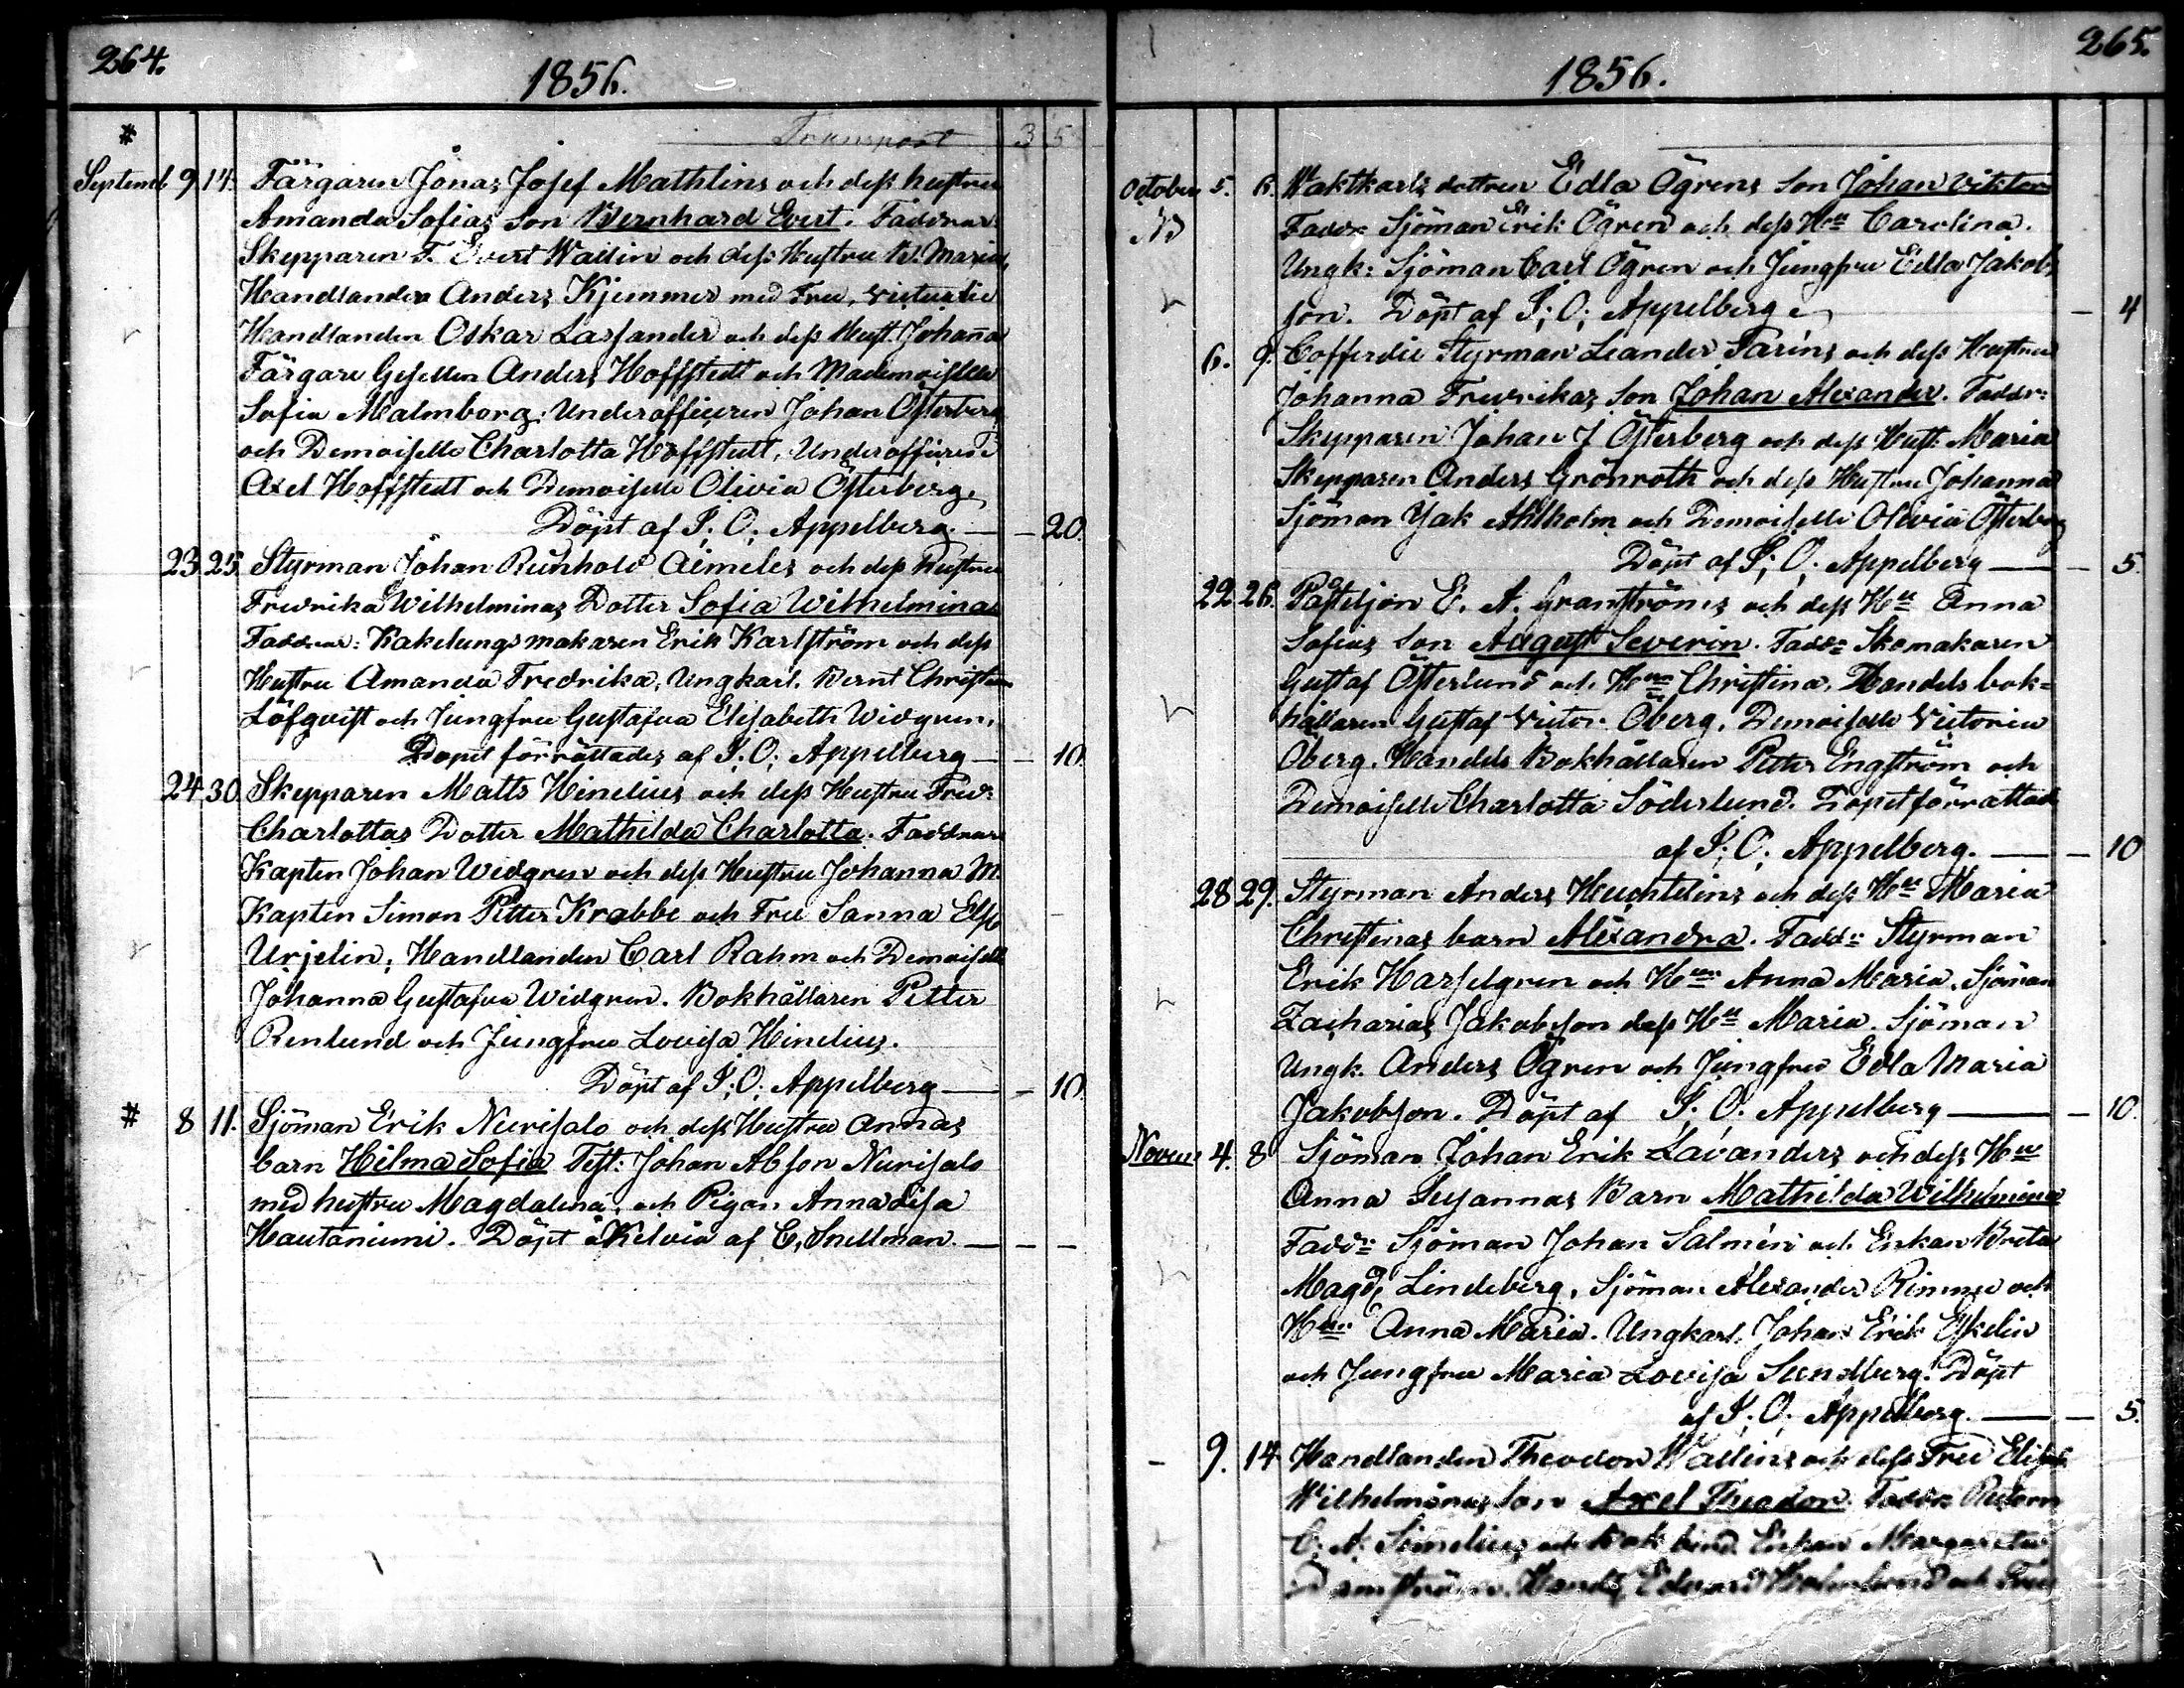 264.
1856.
#
Transport 3 5
Septemb 9 14. Färgaren Jonas Josef Mathlins och dess hustru
Amanda Sofias son Bernhard Evert. Faddrar:
Skepparen F. Evert Wallin och dess Hustru B. Maria,
Handlanden Anders Kjemmer med Fru, Victualie
Handlanden Oskar Lassander och dess Hust. Johanna
Färgare Gesellen Anders Hoffstedt och Mademoiselle
Sofia Malmborg. Underofficeren Johan Österberg
och Demoiselle Charlotta Hoffstedt, Underofficeren
Axel Hoffstedt och Demoiselle Olivia Österberg.
Döpt af I. O. Appelberg. — — 20.
23 25 Styrman Johan Reinhold Aimeles och dess Hustru
Fredrika Wilhelminas Dotter Sofia Wilhelmina
Faddrar: Kakelungsmakaren Erik Karlström och dess
Hustru Amanda Fredrika, Ungkarl. Bernt Christian
Löfqvist och Jungfru Gustafva Elisabeth Widgren.
Dopet förrättades af I. O. Appelberg — — 10.
24 30. Skepparen Matts Hinelius och dess Hustru Fred:
Charlottas Dotter Mathilda Charlotta. Faddrar
Kapten Johan Widgren och dess Hustru Johanna M.
Kapten Simon Petter Krabbe och Fru Sanna Else
Urjelin, Handlanden Carl Rahm och Demoiselle
Johanna Gustafva Widgren. Bokhållaren Petter
Renlund och Jungfru Lovisa Hinelius.
Döpt af I. O. Appelberg — — 10.
# 8 11. Sjöman Erik Nurisalo och dess Hustru Annas
barn Hilma Sofia Test: Johan Abson Nurisalo
med hustru Magdalena, och Pigan Anna Lisa
Hautaniemi. Döpt i Kelviå af C. Snellman. — — —
265.
1856.
October 5. 6. Waktkarls dottren Edla Ögrens Son Johan Viktor
Faddr Sjöman Erik Ögren och dess Hu Carolina.
Ungk: Sjöman Carl Ögren och Jungfru Edla Jakob
son. Döpt af I. O. Appelberg — 4
6. 9. Cofferdie Styrman Leander Parins och dess Hustru
Johanna Fredrikas Son Johan Alexander. Faddr:
Skepparen Johan J Österberg och dess Hust: Maria
Skepparen Anders Grönroth och dess Hustru Johanna
Sjöman Isak Ahlholm och Demoiselle Olivia Österberg
Döpt af I. O. Appelberg — — 5.
22 26. Postiljon E. A. Granströms och dess Hu Anna
Sofias Son August Severin. Faddr Skomakaren
Gustaf Österlund och Hu Christina, Handels bok-
hållaren Gustaf Victor Öberg, Demoiselle Victoria
Öberg. Handels Bokhållaren Petter Engström och
Demoiselle Charlotta Söderlund. Dopet förrättad
af I. O. Appelberg. — — 10
28 29. Styrman Anders Heuchtelins och dess Hu Maria
Christinas barn Alexandra. Faddr Styrman
Erik Hasselgren och Hu Anna Maria, Sjöman
Zacharias Jakobson dess Hu Maria. Sjöman
Ungk. Anders Ögren och Jungfru Edla Maria
Jakobson. Döpt af I. O. Appelberg — — 10.
Novem 4. 8 Sjöman Johan Erik Lavanders och dess Hu
Anna Susannas Barn Mathilda Wilhelmina
Faddr Sjöman Johan Salmén och Enkan Brita
Magd. Lindeberg, Sjöman Alexander Rimmer och
Hu Anna Maria. Ungkarl. Johan Erik Eskelin
och Jungfru Maria Lovisa Sundberg. Döpt
af I. O. Appelberg. — — 5.
- 9. 14 Handlanden Theodor Wallins och dess Fru Elisab
Wilhelminas Son Axel Theodor. Faddr
C. A. Simelius och Enkan Margareta
Handl. Edward Holmlund och Fru